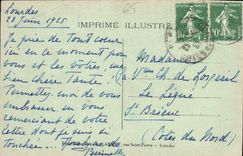 Lourdes
23 Juin 1925
IMPRIMÉ ILLUSTRÉ
Je prie de tout cœur
ici en ce moment pour
vous et les vôtres
bien chère Tante.
Permettez moi de vous
embrasser en vous
remerciant de votre
lettre dont je suis si
touchée.
Madame
la Vtesse de
Le Légué
St Brieuc
(Côtes du Nord)
10
10
rue Saint-Pierre — Lourdes